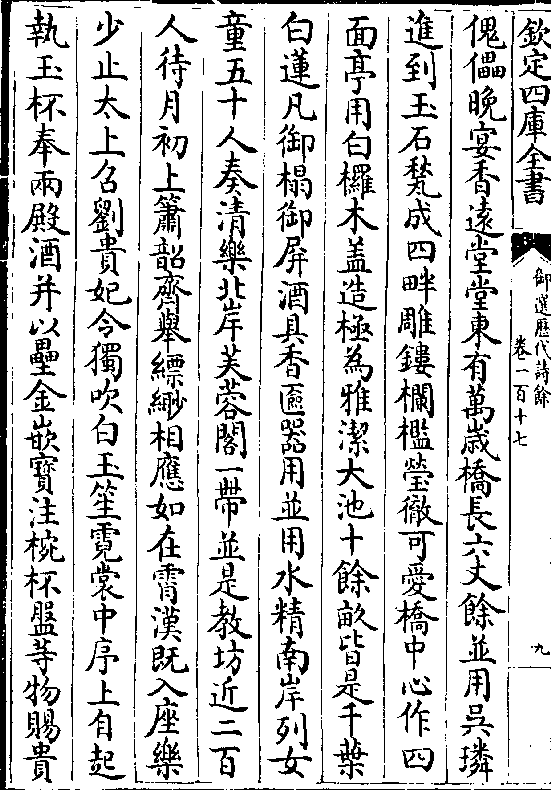 欽定四庫全書
御選歷代詩餘
卷一百十七
九
傀儡晚宴香遠堂堂東有萬歲橋長六丈餘並用吳璘
進到玉石甃成四畔雕鏤欄檻瑩徹可愛橋中心作四
面亭用白欏木蓋造極為雅潔大池十餘畝皆是千葉
白蓮凡御榻御屏酒具香匳器用並用水精南岸列女
童五十人奏清樂北岸芙蓉閣一帶並是教坊近二百
人待月初上簫韶齊舉縹緲相應如在霄漢既入座樂
少止太上召劉貴妃令獨吹白玉笙霓裳中序上自起
執玉杯奉兩殿酒并以壘金嵌寶注椀杯盤等物賜貴